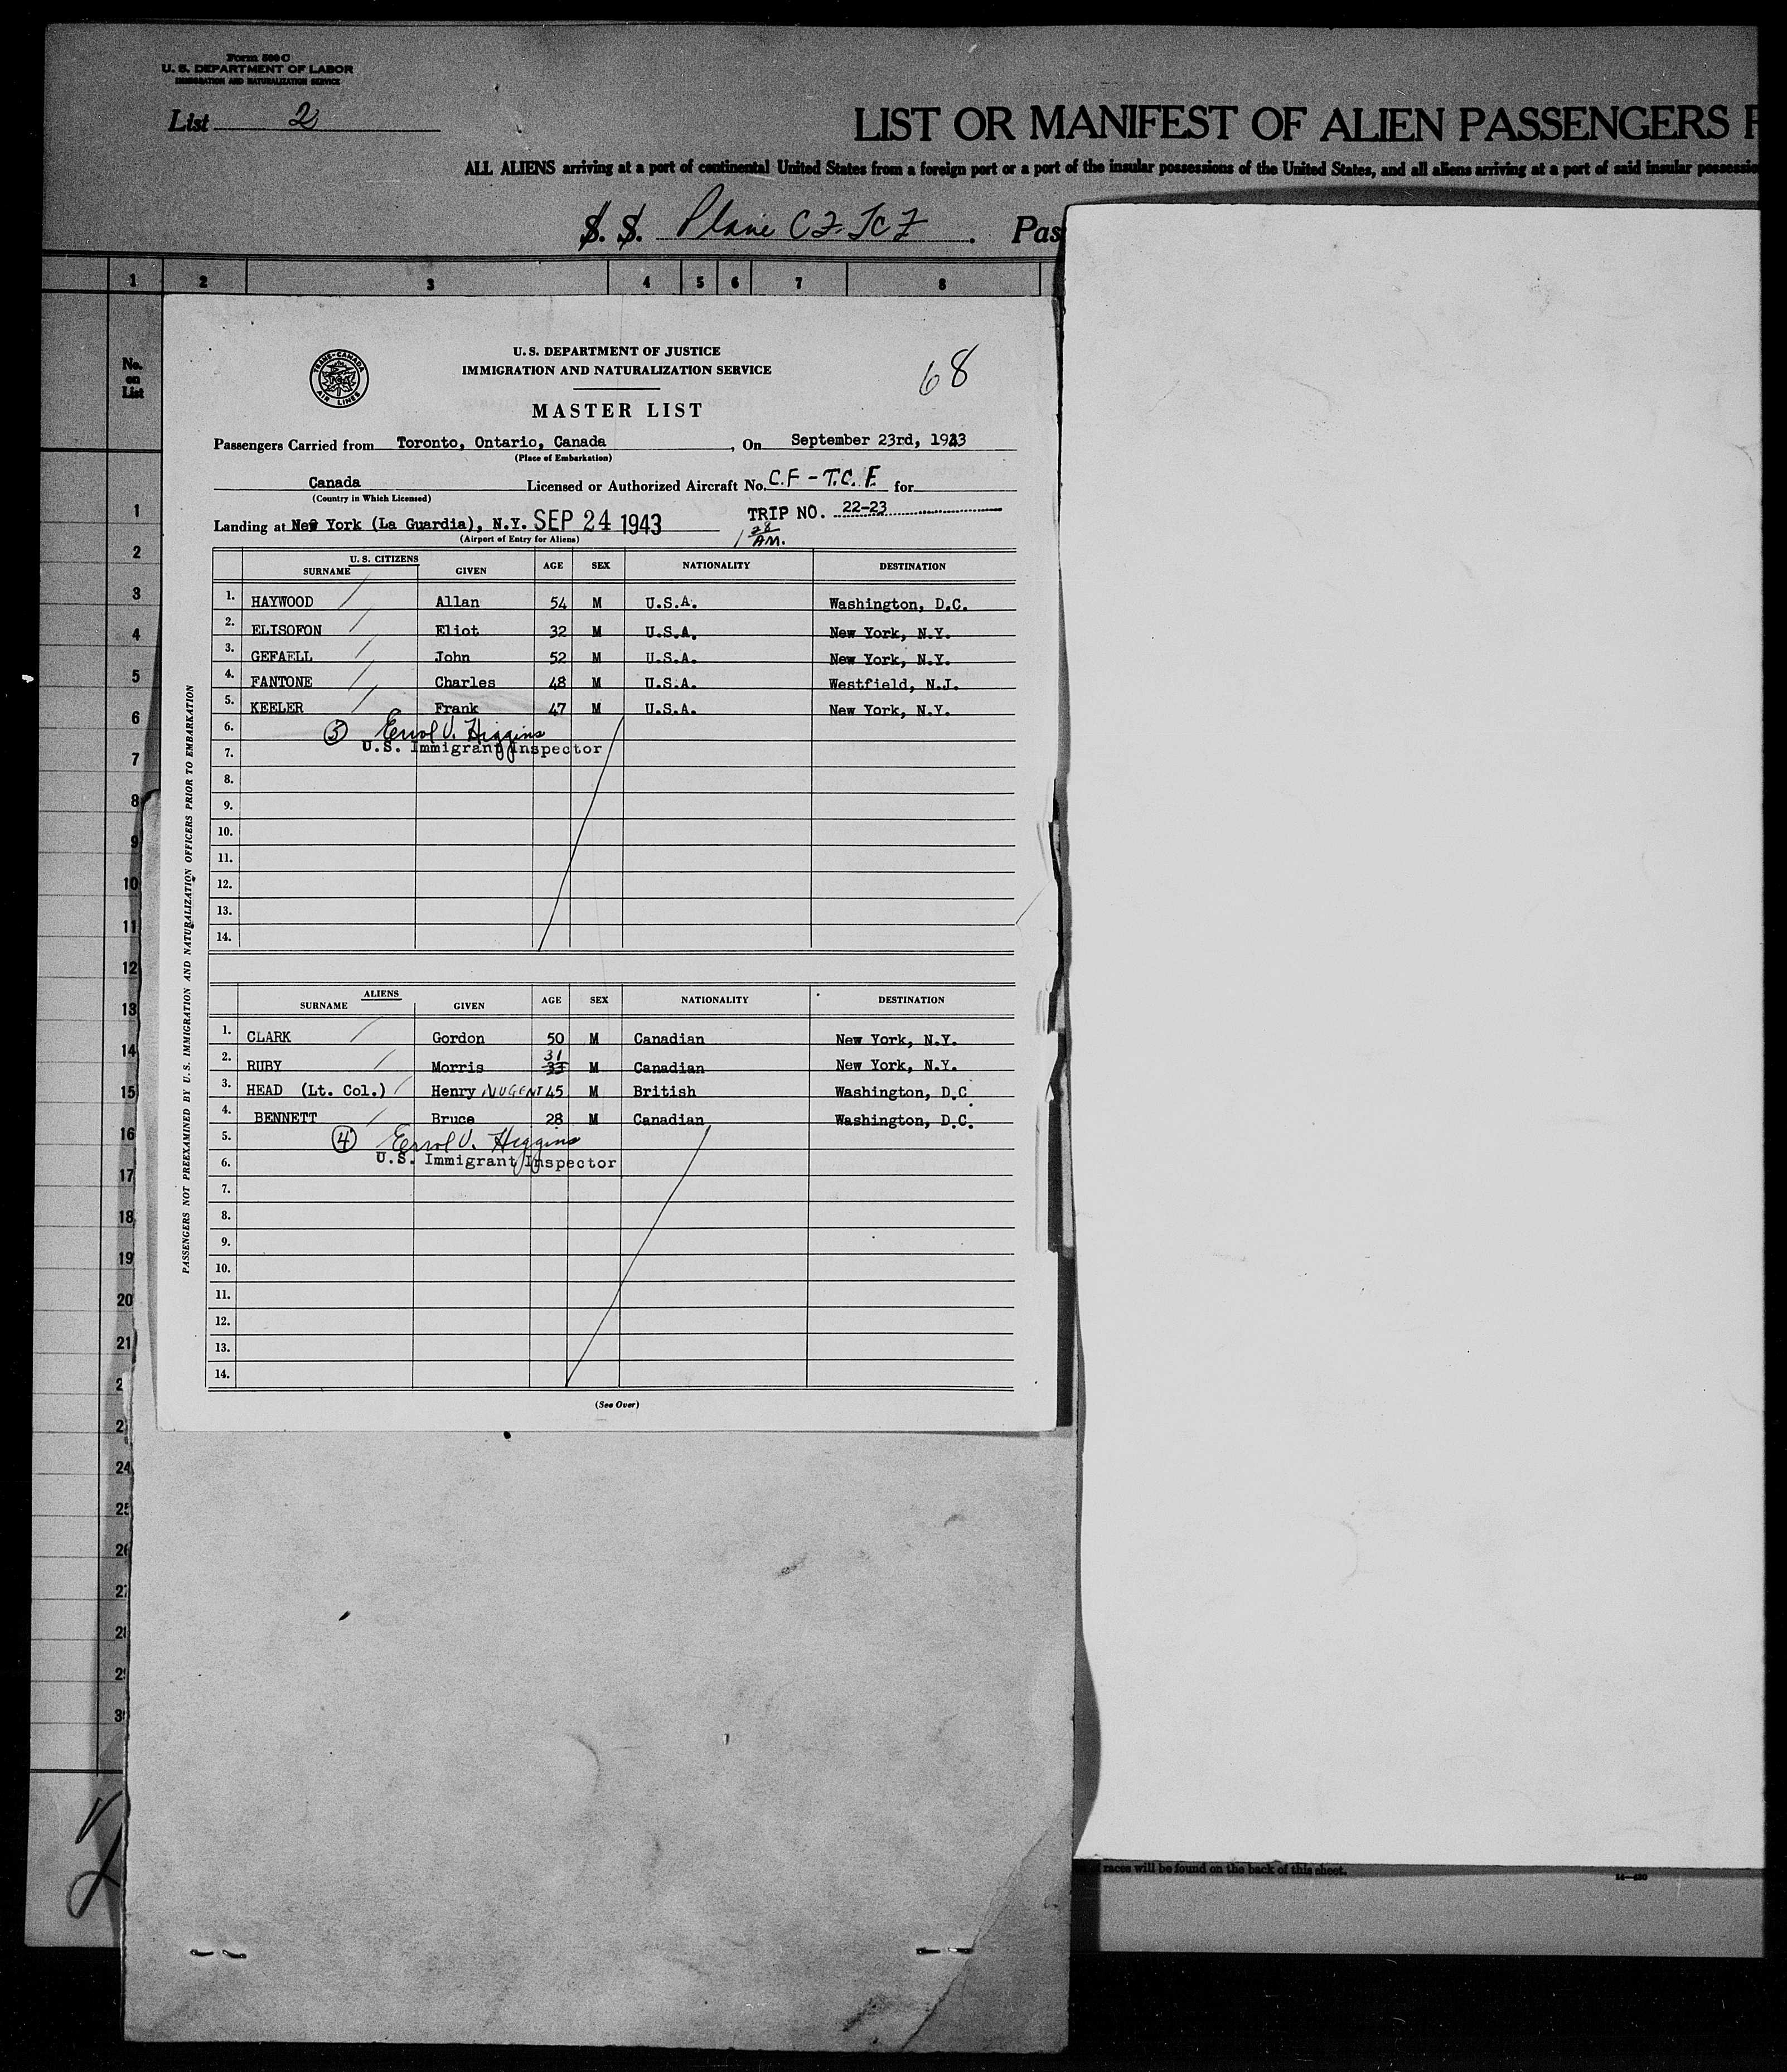 Form 500 C
U. S. DEPARTMENT OF LABOR
IMMIGRATION AND NATURALIZATION SERVICE
List 2
LIST OR MANIFEST OF ALIEN PASSENGERS F
ALL ALIENS arriving at a port of continental United States from a foreign port or a port of the insular possessions of the United States, and all aliens arriving at a port of said insular possessio
S. S. Plane CF-TCF. Pas
1 2 3 4 5 6 7 8
No. on List
TRANS-CANADA AIR LINES
U. S. DEPARTMENT OF JUSTICE
IMMIGRATION AND NATURALIZATION SERVICE
68
MASTER LIST
Passengers Carried from Toronto, Ontario, Canada, On September 23rd, 1943
(Place of Embarkation)
Canada Licensed or Authorized Aircraft No. C.F - T.C.F. for
(Country in Which Licensed)
TRIP NO. 22-23
Landing at New York (La Guardia), N.Y. SEP 24 1943 1 28 AM.
(Airport of Entry for Aliens)
U. S. CITIZENS
SURNAME GIVEN AGE SEX NATIONALITY DESTINATION
1. HAYWOOD Allan 54 M U.S.A. Washington, D.C.
2. ELISOFON Eliot 32 M U.S.A. New York, N.Y.
3. GEFAELL John 52 M U.S.A. New York, N.Y.
4. FANTONE Charles 48 M U.S.A. Westfield, N.J.
5. KEELER Frank 47 M U.S.A. New York, N.Y.
6. 5 Errol V. Higgins
7. U.S. Immigrant Inspector
8.
9.
10.
11.
12.
13.
14.
ALIENS
SURNAME GIVEN AGE SEX NATIONALITY DESTINATION
1. CLARK Gordon 50 M Canadian New York, N.Y.
31
2. RUBY Morris 33 M Canadian New York, N.Y.
3. HEAD (Lt. Col.) Henry NUGENT 45 M British Washington, D.C.
4. BENNETT Bruce 28 M Canadian Washington, D.C.
5. 4 Errol V. Higgins
6. U.S. Immigrant Inspector
7.
8.
9.
10.
11.
12.
13.
14.
(See Over)
PASSENGERS NOT PREEXAMINED BY U. S. IMMIGRATION AND NATURALIZATION OFFICERS PRIOR TO EMBARKATION
1
2
3
4
5
6
7
8
9
10
11
12
13
14
15
16
17
18
19
20
21
2
2
24
25
26
27
28
29
3
races will be found on the back of this sheet.